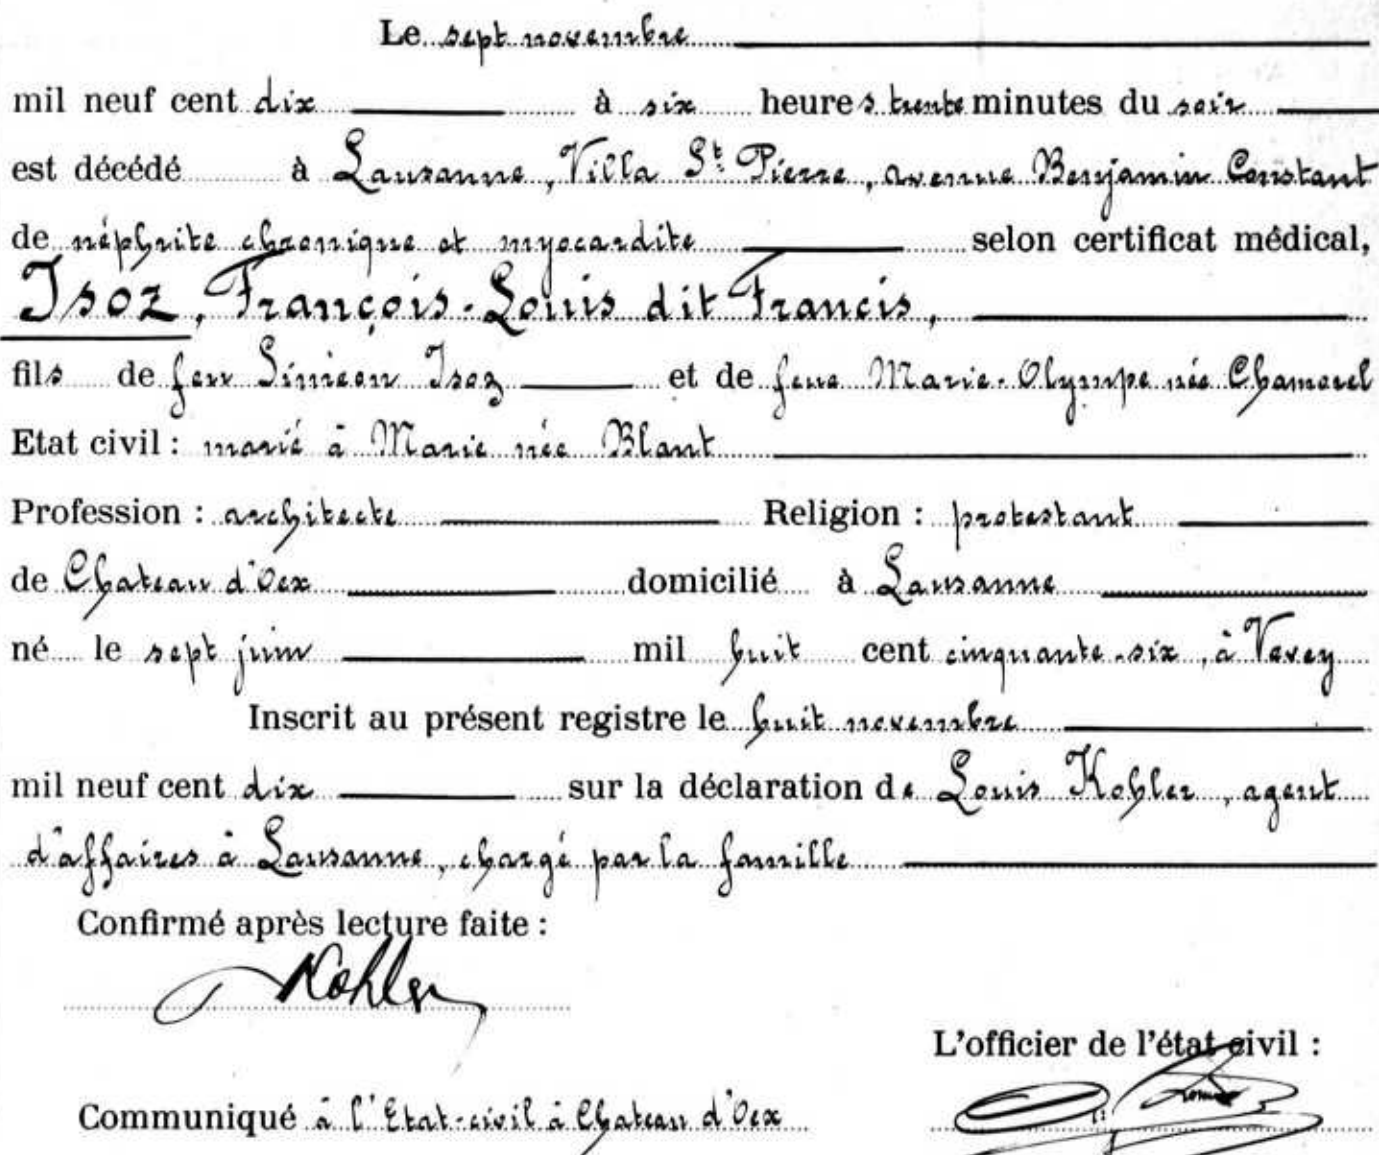 Le sept novembre
mil neuf cent dix à six heures trente minutes du soir
est décédé à Lausanne, Villa St. Pierre, avenue Benjamin Constant
de néphrite chronique et myocardite selon certificat médical,
Isoz, François-Louis dit Francis,
fils de feu Siméon Isoz et de feue Marie-Olympe née Chamorel
Etat civil : marié à Marie née Blant
Profession : architecte Religion : protestant
de Chateau d'Oex domicilié à Lausanne
né le sept juin mil huit cent cinquante-six, à Vevey
Inscrit au présent registre le huit novembre
mil neuf cent dix sur la déclaration de Louis Kohler, agent
d'affaires à Lausanne, chargé par la famille
Confirmé après lecture faite :
Kohler
L'officier de l'état civil :
Communiqué à l'Etat-civil à Chateau d'Oex